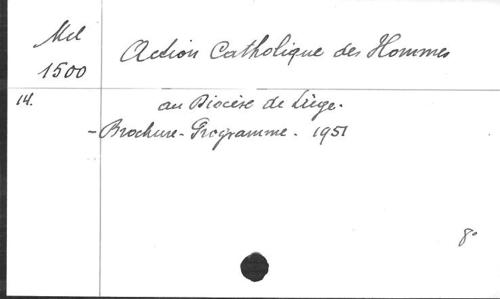 Mel
1500
Action Catholique des Hommes
14.
au Diocèse de Liège.
- Brochure - Programme. 1951
8°